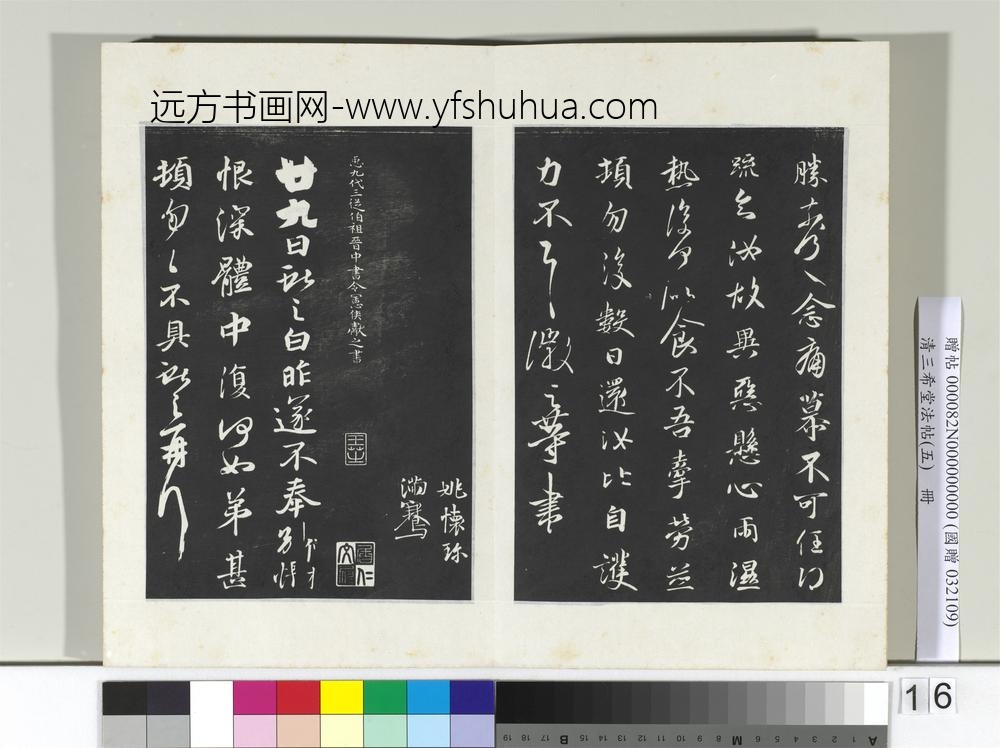 远方书画网-www.yfshuhua.com
勝奈何〻念痛慕不可任得
疏知汝故異惡懸心雨濕
熱復何似食不吾牽勞並
頓勿復數日還汝比自護
力不一一徽之等書
姚懷珍
滿騫
臣九代三從伯祖晉中書令憲侯獻之書
廿九日獻之白昨遂不奉別悵
恨深體中復何如弟甚
頓匆〻不具獻之再拜
贈帖 000082N000000000 (國贈 032109)
清三希堂法帖(五) 冊
16